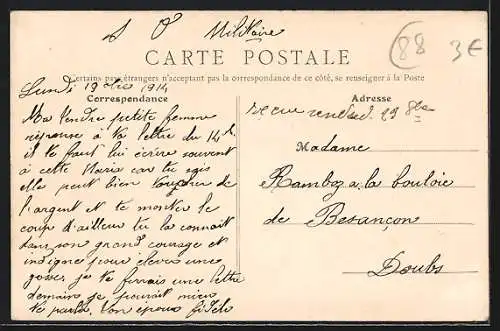 S O Militaire
88
3€
CARTE POSTALE
Certains pays étrangers n'acceptant pas la correspondance de ce côté, se renseigner à la Poste
Correspondance
Lundi 19 1914
Ma tendre petite femme
réponse à ta lettre du 14
il te faut lui écrire souvent
à cette Maria car tu sais
elle peut bien de
l'argent et te monter le
coup d'ailleur tu la connait
dans son grand courage et
indigne pour élever une
gosse, je te ferais une lettre
demain je pourait mieu
te parler ton époux fidèle
Adresse
reçue vendred. 23
Madame
Ramboz a la bouloie
de Besançon
Doubs